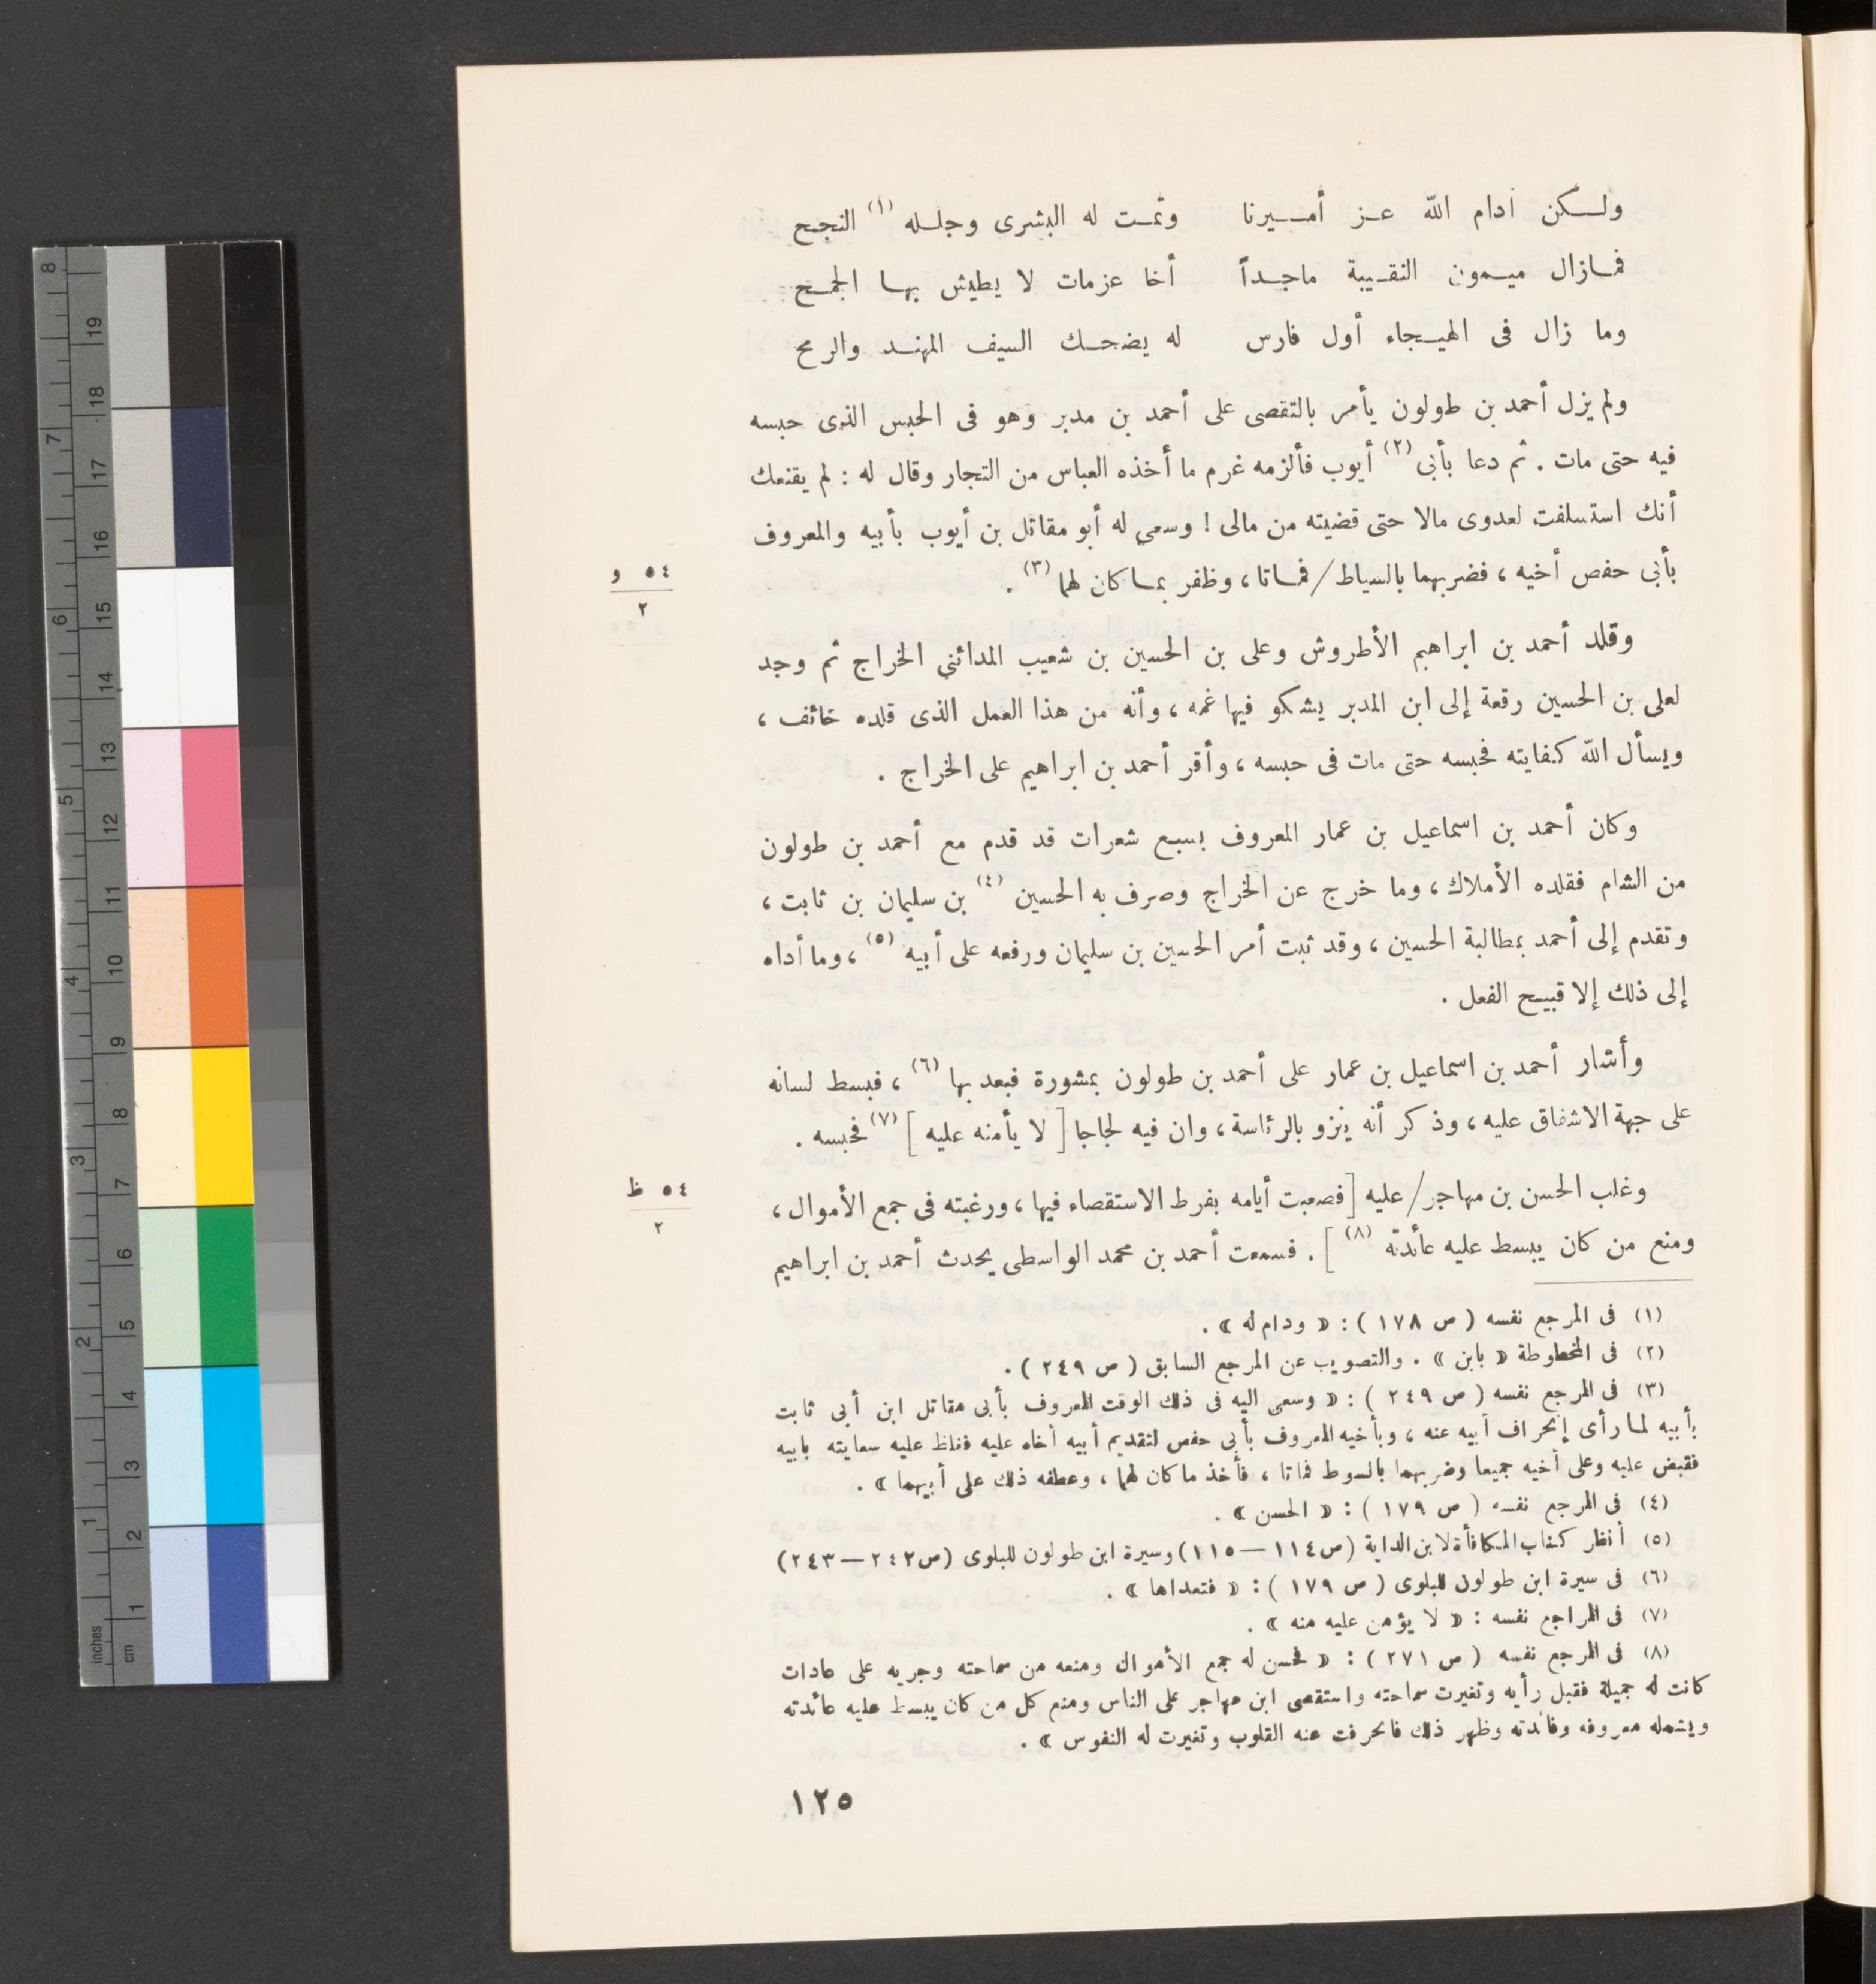 ولكن أدام الله عز أميرنا وتمت له البشرى وجلله (١) النجح
فمازال ميمون النقيبة ماجداً أخا عزمات لا يطيش بها الجمح
وما زال فى الهيجاء أول فارس له يضحك السيف المهند والرمح
ولم يزل أحمد بن طولون يأمر بالتقصى على أحمد بن مدبر وهو فى الحبس الذى حبسه
فيه حتى مات . ثم دعا بأبى (٢) أيوب فألزمه غرم ما أخذه العباس من التجار وقال له : لم يقنعك
أنك استسلفت لعدوى مالا حتى قضيته من مالى ! وسعى له أبو مقاتل بن أيوب بأبيه والمعروف
بأبى حفص أخيه ، فضربهما بالسياط/ فماتا ، وظفر بما كان لهما (٣) .
٥٤ و
٢
وقلد أحمد بن ابراهيم الأطروش وعلى بن الحسين بن شعيب المدائنى الخراج ثم وجد
لعلى بن الحسين رقعة إلى ابن المدبر يشكو فيها غمه ، وأنه من هذا العمل الذى قلده خائف ،
ويسأل الله كفايته فحبسه حتى مات فى حبسه ، وأقر أحمد بن ابراهيم على الخراج .
وكان أحمد بن اسماعيل بن عمار المعروف بسبع شعرات قد قدم مع أحمد بن طولون
من الشام فقلده الأملاك ، وما خرج عن الخراج وصرف به الحسين (٤) بن سليمان بن ثابت ،
وتقدم إلى أحمد بمطالبة الحسين ، وقد ثبت أمر الحسين بن سليمان ورفعه على أبيه (٥) ، وما أداه
إلى ذلك إلا قبيح الفعل .
وأشار أحمد بن اسماعيل بن عمار على أحمد بن طولون بمشورة فبعد بها (٦) ، فبسط لسانه
على جهة الاشفاق عليه ، وذكر أنه ينزو بالرئاسة ، وان فيه لجاجا [ لا يأمنه عليه ] (٧) فحبسه .
وغلب الحسن بن مهاجر/ عليه [ فصعبت أيامه بفرط الاستقصاء فيها ، ورغبته فى جمع الأموال ،
٥٤ ظ
٢
ومنع من كان يبسط عليه عائدته (٨) ] . فسمعت أحمد بن محمد الواسطى يحدث أحمد بن ابراهيم
(١) فى المرجع نفسه ( ص ١٧٨ ) : « ودام له » .
(٢) فى المخطوطة « بابن » . والتصويب عن المرجع السابق ( ص ٢٤٩ ) .
(٣) فى المرجع نفسه ( ص ٢٤٩ ) : « وسعى اليه فى ذلك الوقت المعروف بأبى مقاتل ابن أبى ثابت
بأبيه لما رأى إنحراف أبيه عنه ، وبأخيه المعروف بأبى حفص لتقديم أبيه أخاه عليه فغلظ عليه سعايته بابيه
فقبض عليه وعلى أخيه جميعا وضربهما بالسوط فماتا ، فأخذ ما كان لهما ، وعطفه ذلك على أبيهما » .
(٤) فى المرجع نفسه ( ص ١٧٩ ) : « الحسن » .
(٥) أنظر كتاب المكافأة لابن الداية (ص ١١٤ — ١١٥) وسيرة ابن طولون للبلوى (ص ٢٤٢ — ٢٤٣)
(٦) فى سيرة ابن طولون للبلوى ( ص ١٧٩ ) : « فتعداها » .
(٧) فى المراجع نفسه : « لا يؤمن عليه منه » .
(٨) فى المرجع نفسه ( ص ٢٧١ ) : « فحسن له جمع الأموال ومنعه من سماحته وجريه على عادات
كانت له جميلة فقبل رأيه وتغيرت سماحته واستقصى ابن مهاجر على الناس ومنع كل من كان يبسط عليه عائدته
ويشمله معروفه وفائدته وظهر ذلك فانحرفت عنه القلوب وتغيرت له النفوس » .
١٢٥
inches
1 2 3 4 5 6 7 8
cm
1 2 3 4 5 6 7 8 9 10 11 12 13 14 15 16 17 18 19